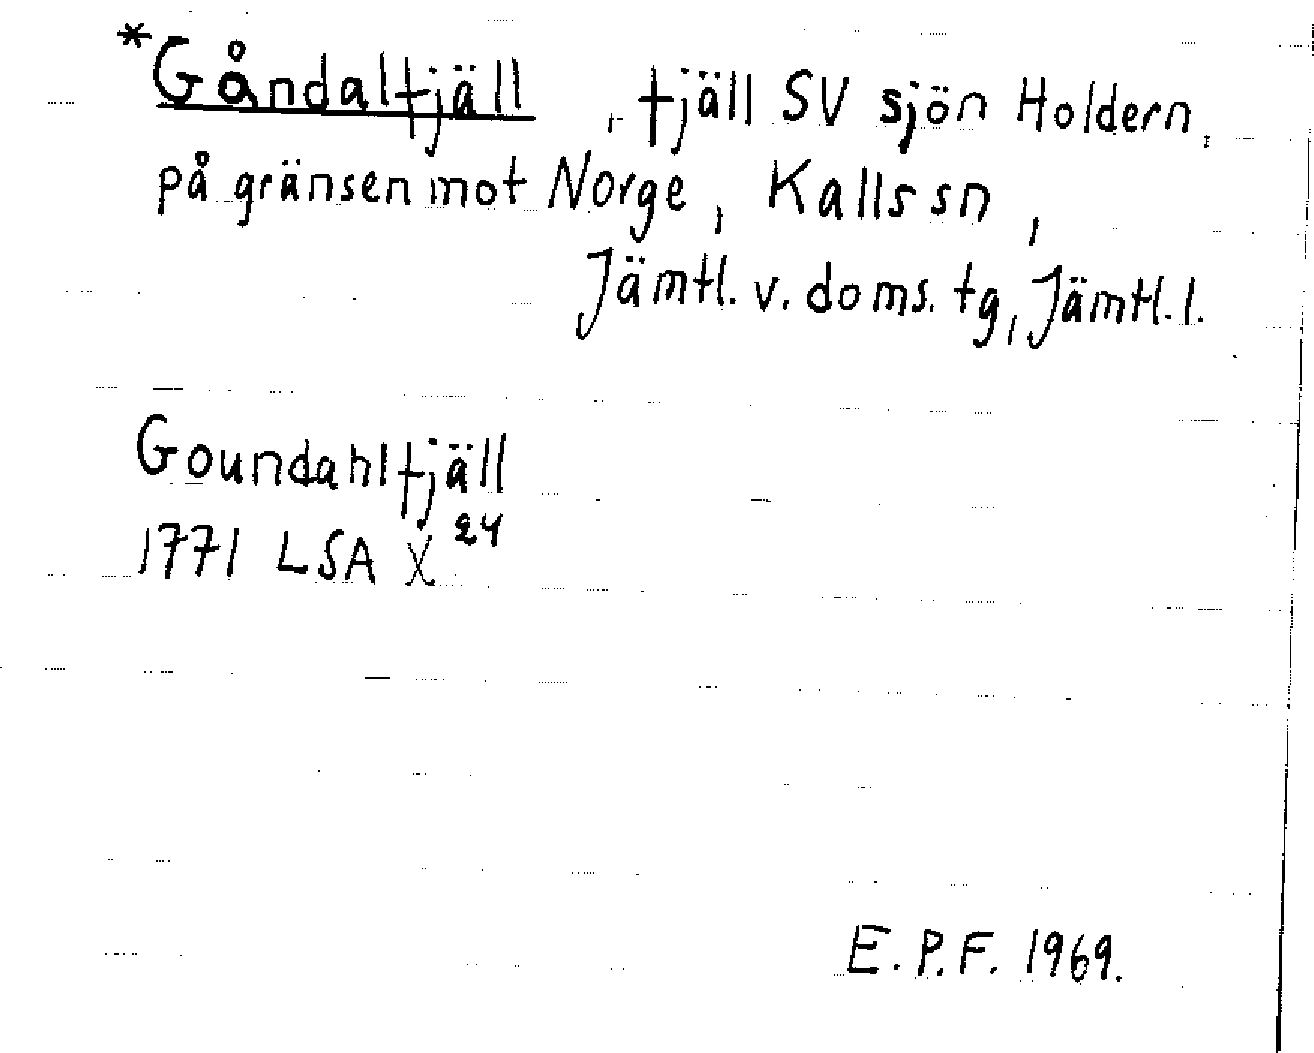 *Gåndalfjäll, fjäll SV sjön Holdern,
på gränsen mot Norge, Kalls sn,
Jämtl. v. doms. tg, Jämtl. l.
Goundahlfjäll
1771 LSA X 24
E. P. F. 1969.